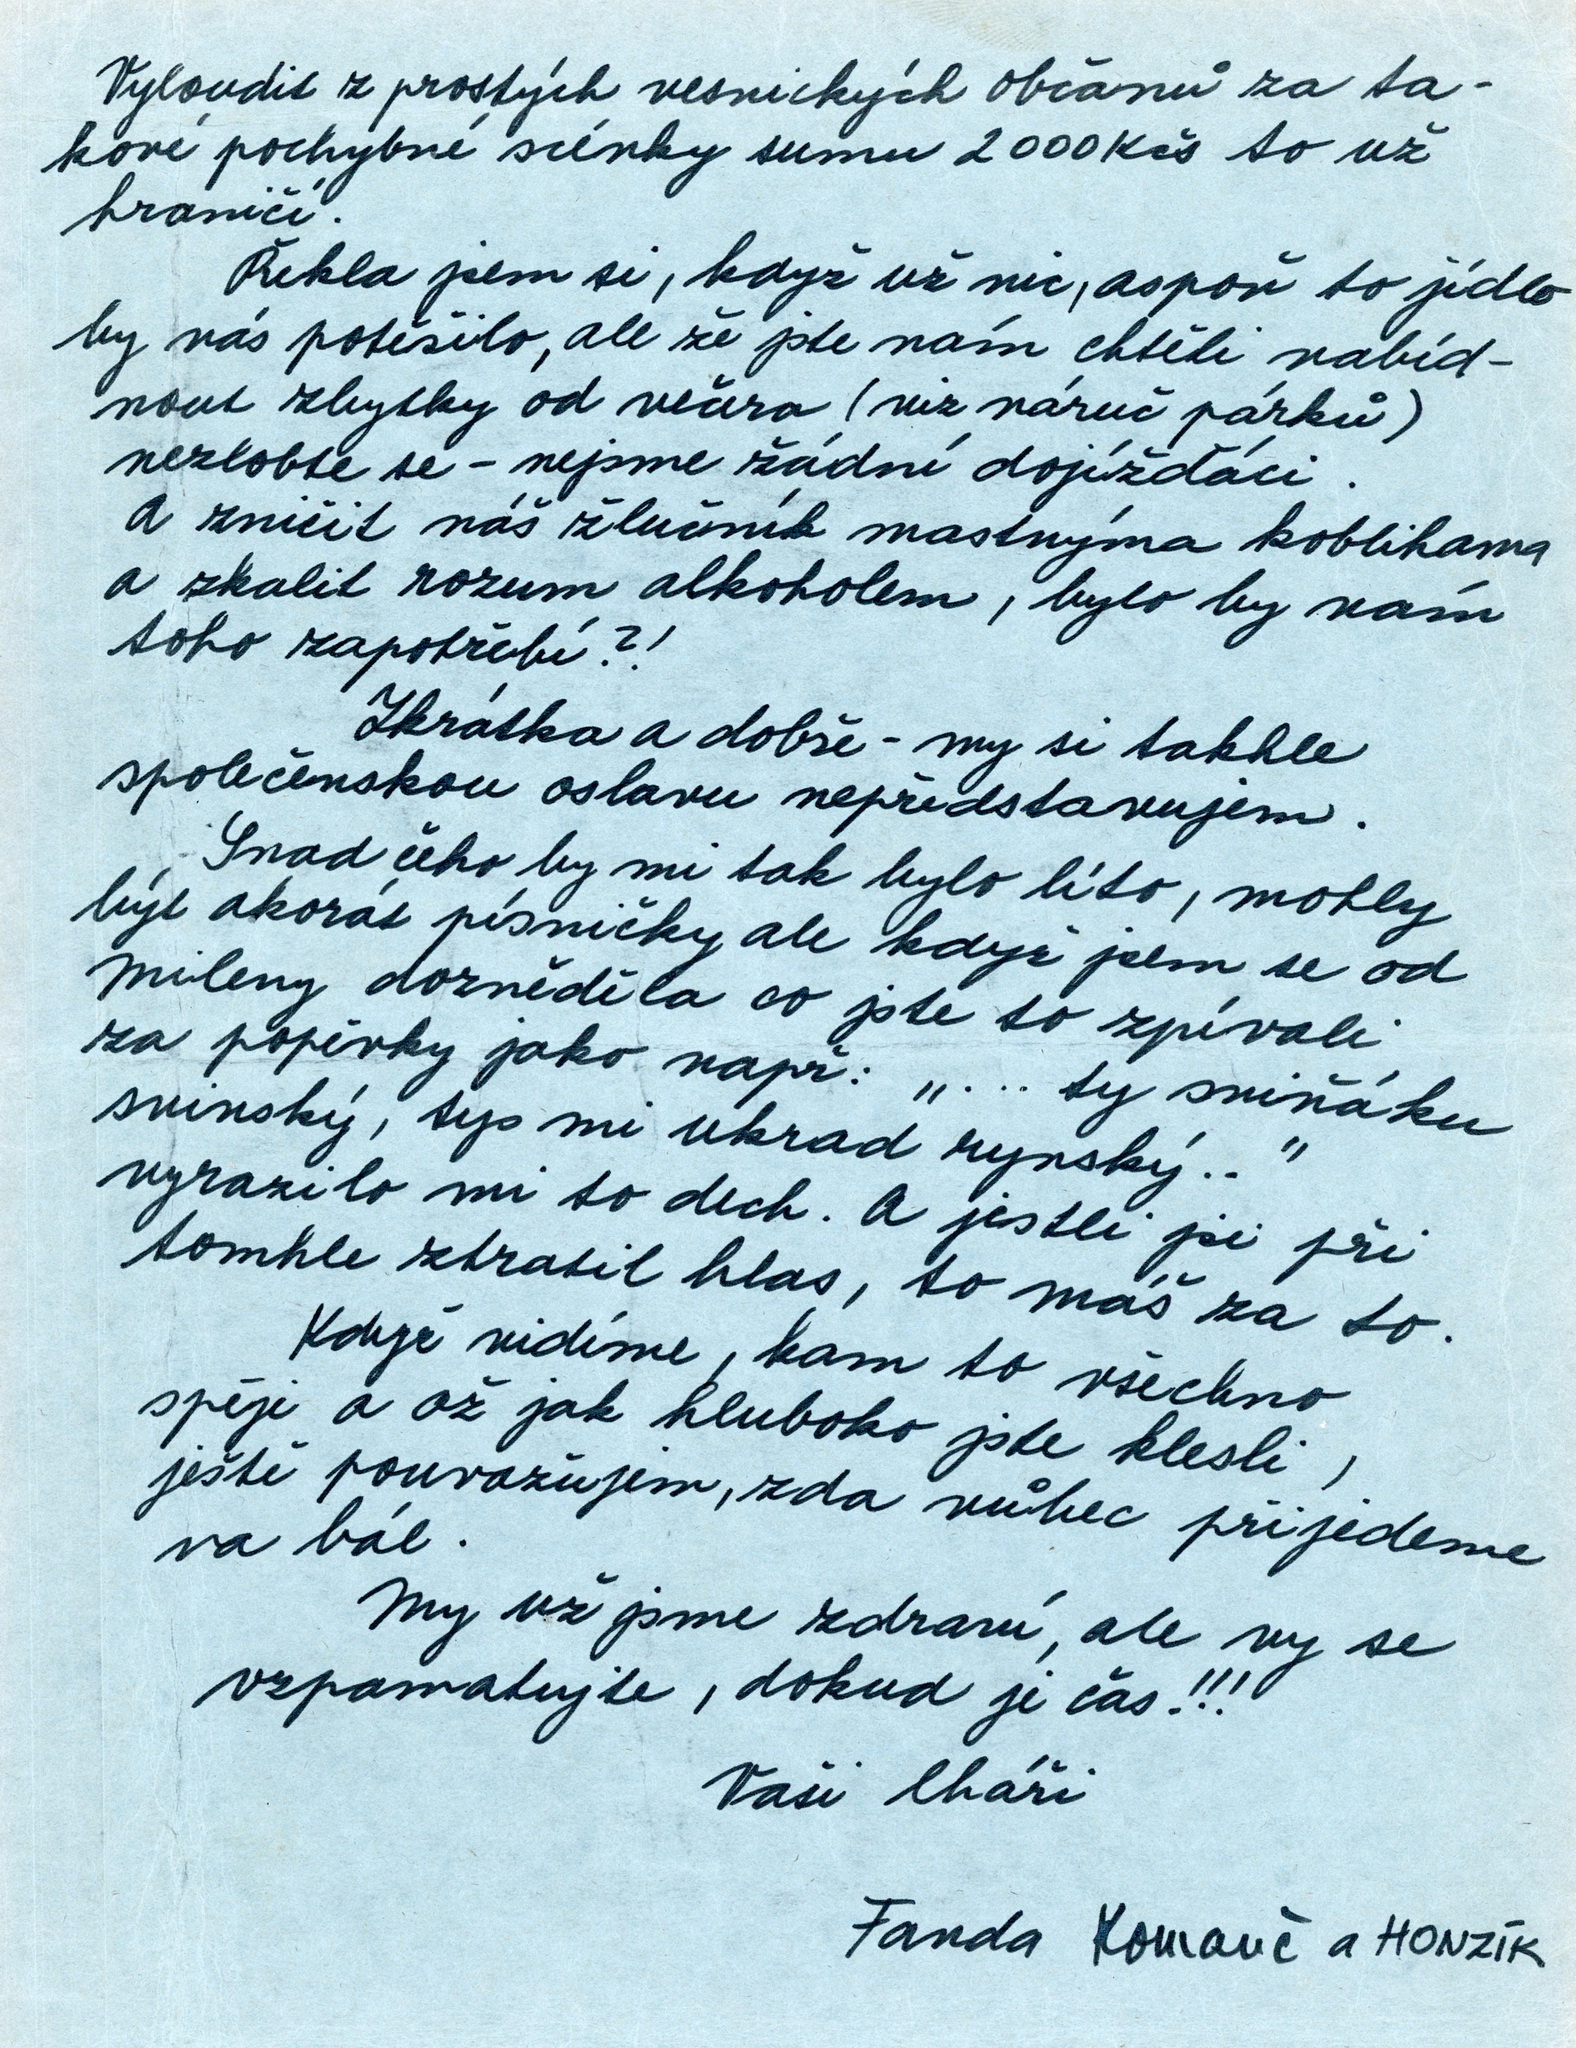 Vyloudit z prostých vesnických občanů za ta-
kové pochybné scénky sumu 2000 Kčs to už
hraničí.
Řekla jsem si, když už nic, aspoň to jídlo
by nás potěšilo, ale že jste nám chtěli nabíd-
nout zbytky od večera (viz náruč párků)
nezlobte se - nejsme žádní dojížďáci.
A zničit náš žlučník mastnýma koblihama
a zkalit rozum alkoholem, bylo by vám
toho zapotřebí?!
Zkrátka a dobře - my si takhle
společenskou oslavu nepředstavujem.
Snad čeho by mi tak bylo líto, mohly
být akorát písničky ale když jsem se od
Mileny dozvěděla co jste to zpívali
za popěvky jako např: „... ty sviňáku
svinský, tys mi ukrad rynský.."
vyrazilo mi to dech. A jestli jsi při
tomhle ztratil hlas, to máš za to.
Když vidíme, kam to všechno
spěje a až jak hluboko jste klesli,
ještě pouvažujem, zda vůbec přijedeme
na bál.
My už jsme zdraví, ale vy se
vzpamatujte, dokud je čas!!!
Vaši lháři
Fanda a HONZÍK